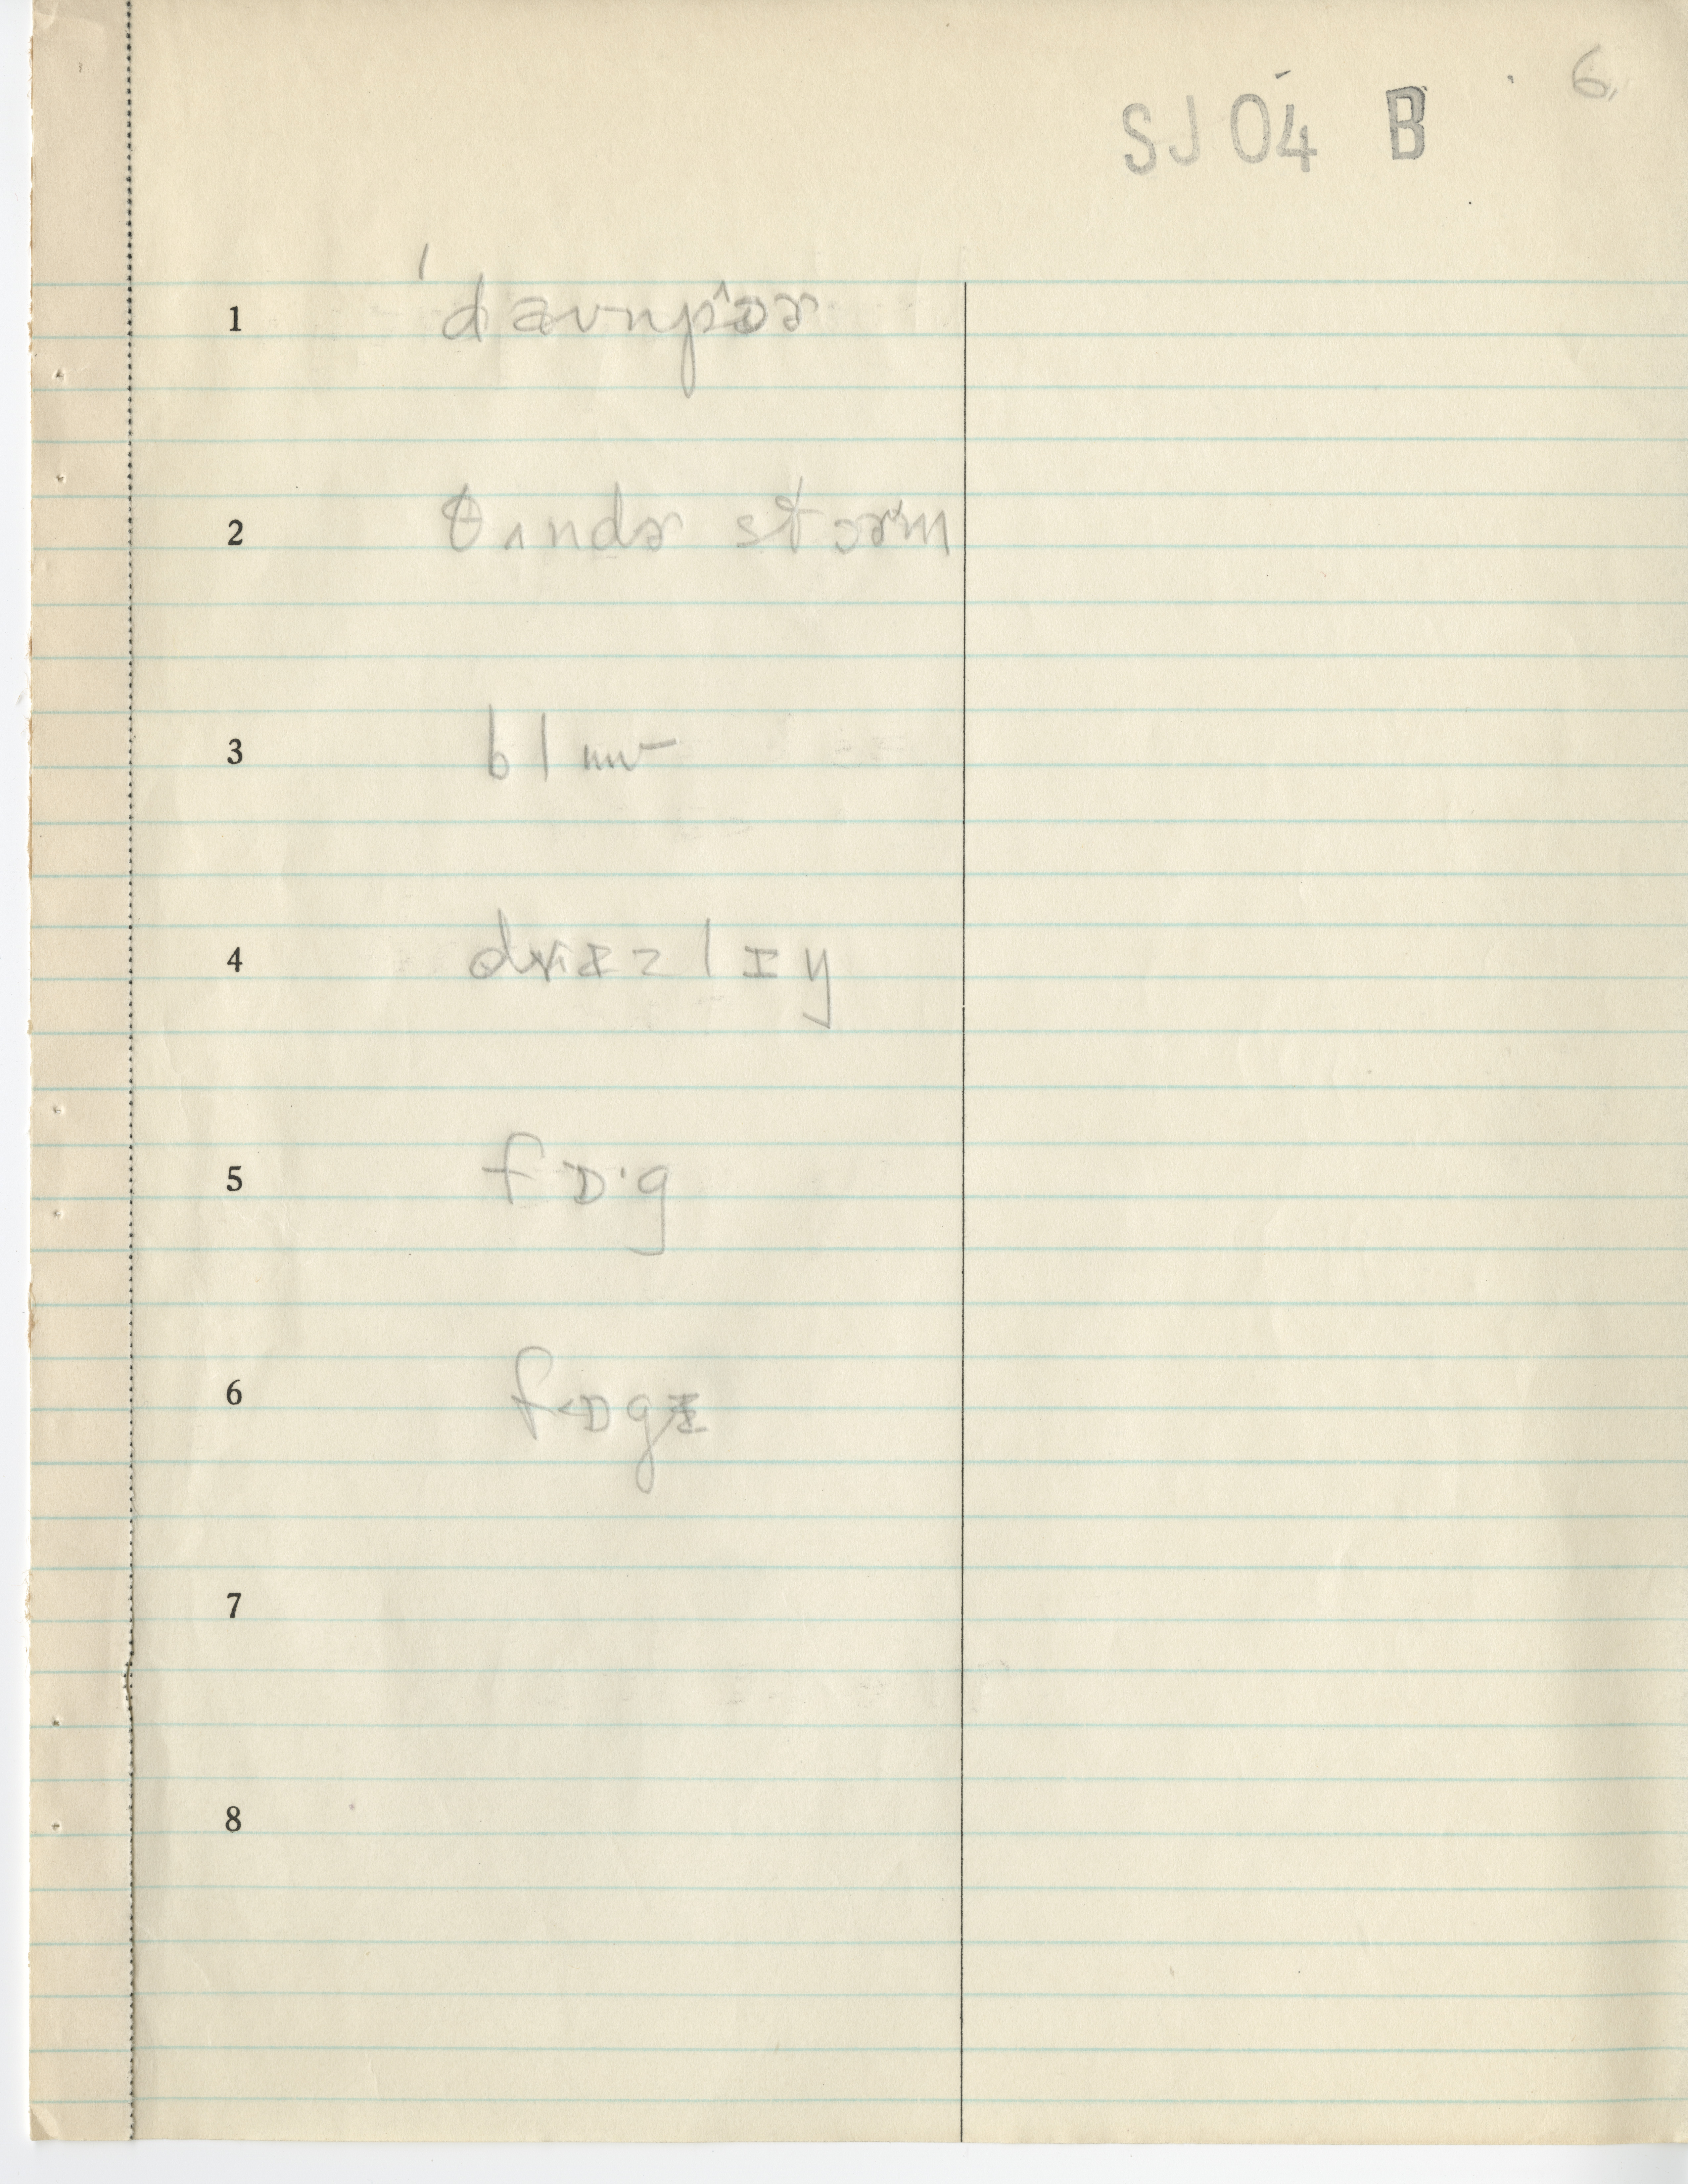 6
SJ 04 B
1 ˈdaʊnpɔɚ
2 θʌndɚ stɔɚm
3 blɯu
4 drɪzlɪy
5 fɒˑg
6 f<ɒgɪ
7
8